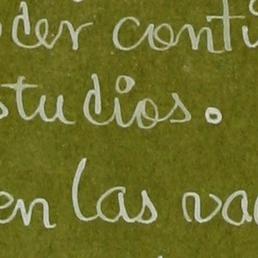 der conti
studios.
en las va